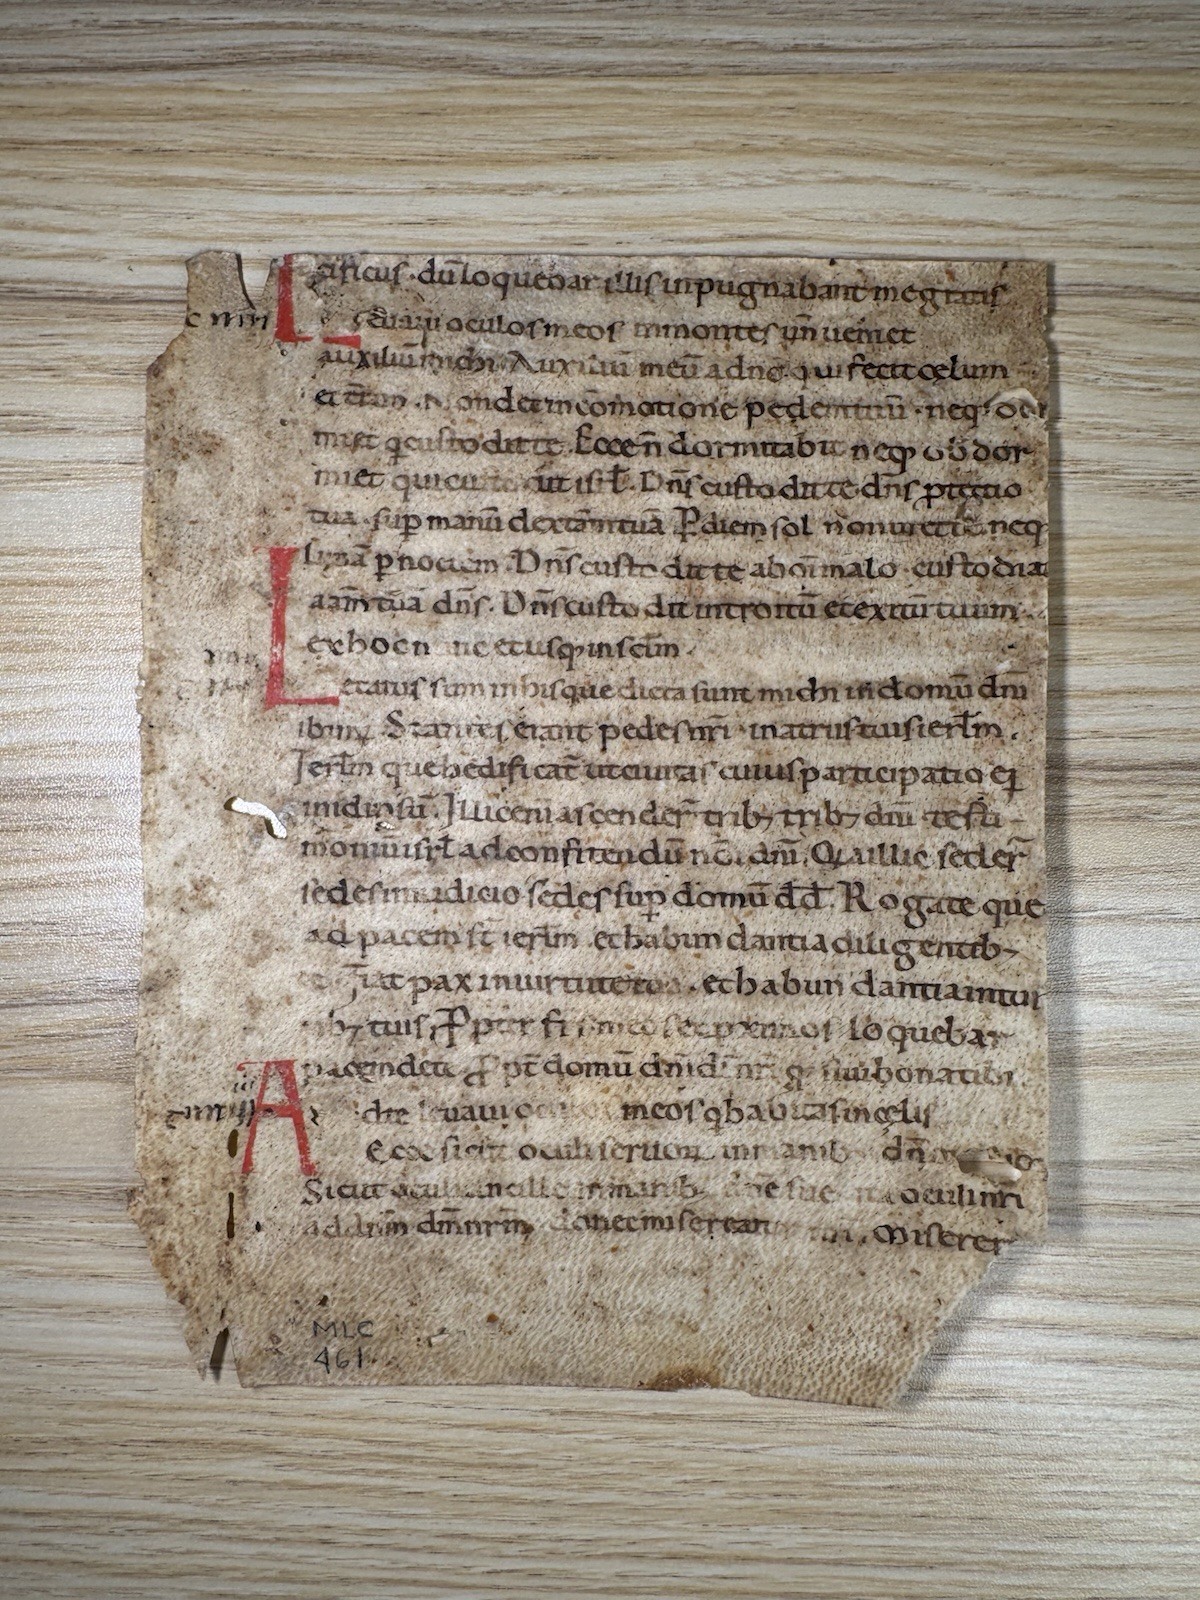 cificus · dū loquebar illis inpugnabant me gratis
Levavi oculos meos in montes un̄ veniet
auxiliū michi Auxiliū meū a dn̄o · qui fecit cęlum
et t̄ram · Non det in cōmotione pedem tuū · neq;
miet q̇ custodit te. Ecce n̄ dormitabit neq; obdor
miet qui custodit isrl̄. Dn̄s custodit te · dn̄s ꝓtectio
tua · sup̄ manū dext̄am tuā Ꝑ diem sol non uret te neq;
Lunā ꝑ noctem. Dn̄s custodit te ab om̄i malo · custodiat
aām tuā dn̄s. Dn̄s custodit introitū et exitū tuum ·
ex hoc nunc et usq; in sc̄m.
Letatus sum in his que dicta sunt michi in domū dn̄i
ibim; Stantes erant pedes nr̄i · in atriis tuis ierl̄m.
Ierl̄m que hedificat̄ ut civitas cuius participatio ei;
in idipsū. Illic eni ascender̄ trib; trib; dn̄i · testi-
moniū isrl̄ ad confitendū dn̄i. Quia illic seder̄
sedes in iudicio · sedes sup̄ domū dd̄. Rogate que
ad pacem st̄ ierl̄m · et habundantia diligentib;
et Fiat pax in virtute tua · et habundantia in tur
rib; tuis. Ꝓpter fr̄s meos et p̄ximos loquebar
pacem de te Ꝓpt̄ domū dn̄i dī nr̄i q̄sivi bona tibi.
Ad te levavi oculos meos q̇ habitas in cęlis
Ecce sicut oculi servorꝝ in manib; dn̄orꝝ
Sicut oculi ancille in manib; dn̄e sue · ita oculi nr̄i
ad dn̄m dm̄ nrm̄ · donec misereatur nr̄i. Miserere
MLC
461.